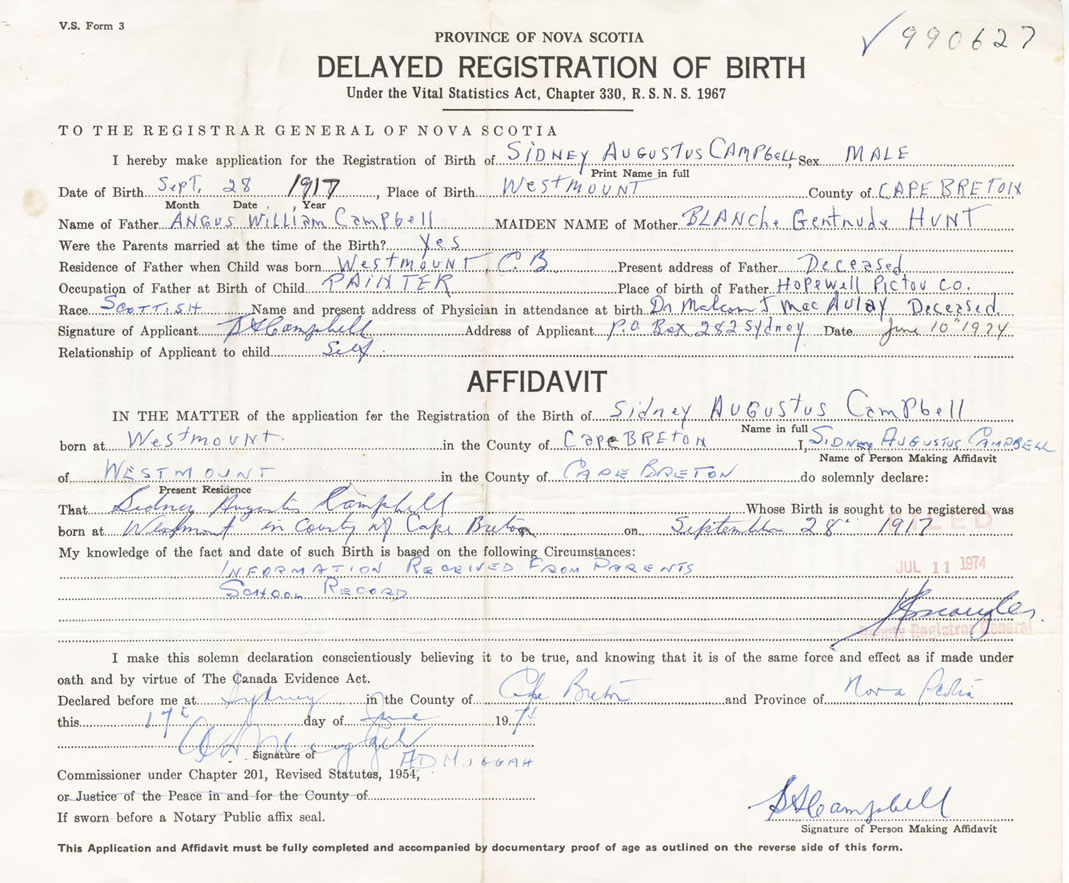 V.S. Form 3
✓ 990627
PROVINCE OF NOVA SCOTIA
DELAYED REGISTRATION OF BIRTH
Under the Vital Statistics Act, Chapter 330, R. S. N. S. 1967
TO THE REGISTRAR GENERAL OF NOVA SCOTIA
I hereby make application for the Registration of Birth of SIDNEY AUGUSTUS CAMPBELL Sex MALE
Print Name in full
Date of Birth Sept. 28 1917, Place of Birth WESTMOUNT County of CAPE BRETON
Month Date Year
Name of Father ANGUS WILLIAM CAMPBELL MAIDEN NAME of Mother BLANCHE GERTRUDE HUNT
Were the Parents married at the time of the Birth? Yes
Residence of Father when Child was born WESTMOUNT, C.B Present address of Father Deceased
Occupation of Father at Birth of Child PAINTER Place of birth of Father HOPEWELL PICTOU CO.
Race SCOTTISH Name and present address of Physician in attendance at birth Dr Malcom J MacAulay Deceased
Signature of Applicant SACampbell Address of Applicant P.O. Box 282 Sydney Date June 10 1974
Relationship of Applicant to child Self
AFFIDAVIT
IN THE MATTER of the application for the Registration of the Birth of Sidney AUGUSTUS Campbell
Name in full
born at Westmount in the County of CAPE BRETON I, SIDNEY AUGUSTUS CAMPBELL
Name of Person Making Affidavit
of WESTMOUNT in the County of CAPE BRETON do solemnly declare:
Present Residence
That Sidney Augustus Campbell Whose Birth is sought to be registered was
born at Westmount in County of Cape Breton on September 28 1917
My knowledge of the fact and date of such Birth is based on the following Circumstances:
INFORMATION RECEIVED FROM PARENTS
JUL 11 1974
SCHOOL RECORD
Deputy Registrar General
I make this solemn declaration conscientiously believing it to be true, and knowing that it is of the same force and effect as if made under
oath and by virtue of The Canada Evidence Act.
Declared before me at Sydney in the County of Cape Breton and Province of Nova Scotia
this 17th day of June 1974
Signature of AD MUGGAH
Commissioner under Chapter 201, Revised Statutes, 1954,
or Justice of the Peace in and for the County of
If sworn before a Notary Public affix seal.
SACampbell
Signature of Person Making Affidavit
This Application and Affidavit must be fully completed and accompanied by documentary proof of age as outlined on the reverse side of this form.